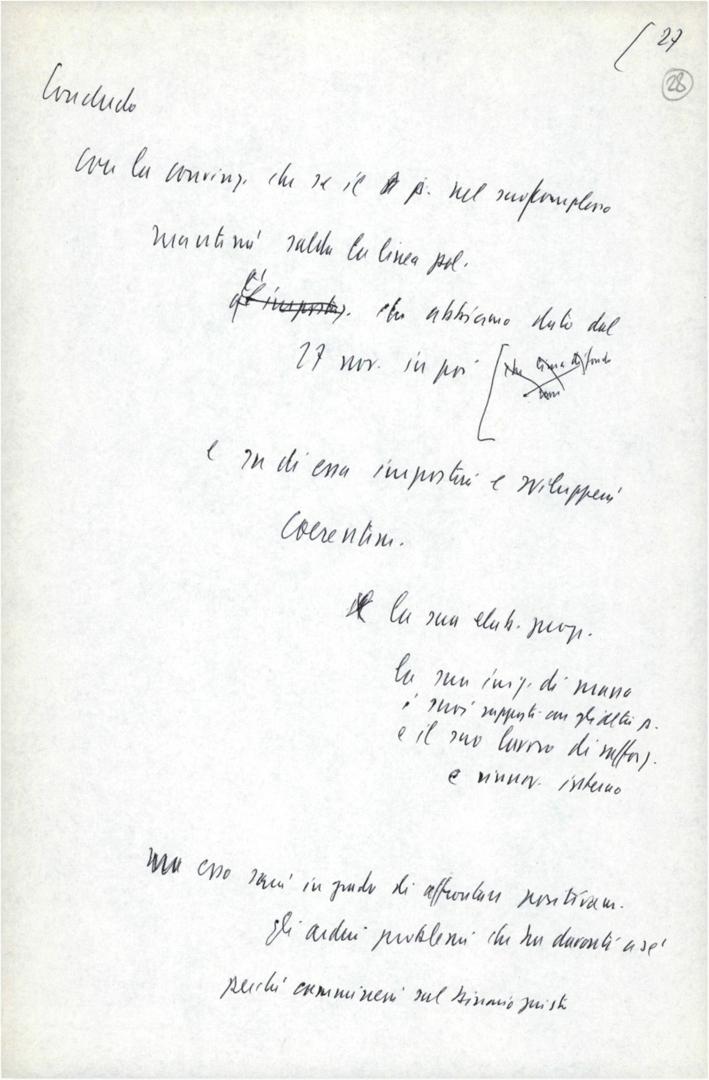 [27
28
Concludo
con la convinz. che se il p. nel suo complesso
manterrà salda la linea pol.
che abbiamo dato dal
27 nov. in poi [
e su di essa imposterà e svilupperà
coerentem.
la sua elab. prop.
la sua iniz. di massa
i suoi rapporti con gli altri p.
e il suo lavoro di rafforz.
e rinnov. interno
esso sarà in grado di affrontare positivam.
gli ardui problemi che ha davanti a sé
perché camminerà sul binario giusto